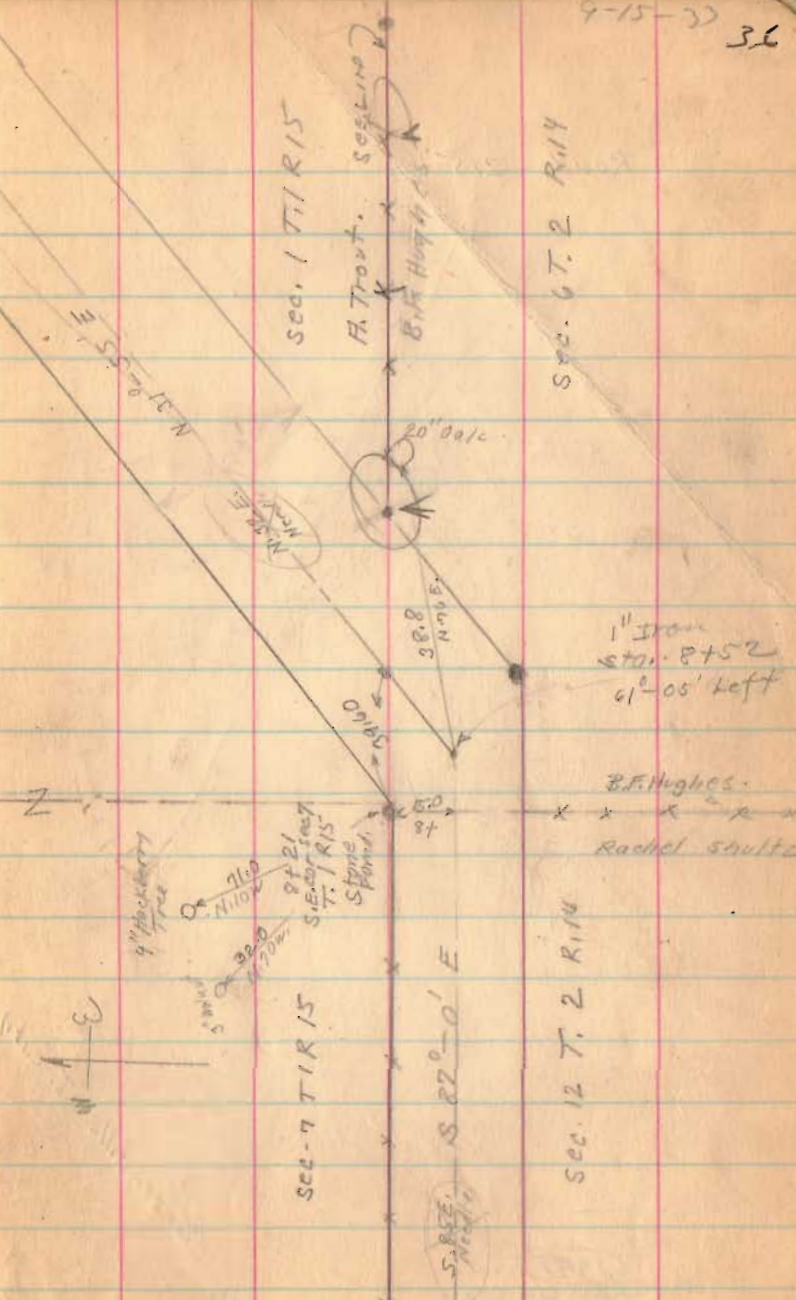 9-15-33
36
Sec. 1 T.1 R15
A. Trout. Sec Line
B.F. Hughes.
Sec. 6 T. 2 R.14
N. 31°-55' E
N. 32 E.
Need.
20" Oak.
38.8
N.76 E.
1" Iron
Sta. 8+52
61°-05' Left
34.60
15.0
8+
B.F. Hughes.
Rachel Shultz
N
9" Hackberry
Tree
71.0
N.10W
32.0
N.70W.
8+21
S.E. cor Sec 7.
T. 1 R15
Stone
Found.
E
W
Sec-7 T1R15
S 87°-0' E
S. 85E.
Needle.
Sec. 12 T. 2 R.14